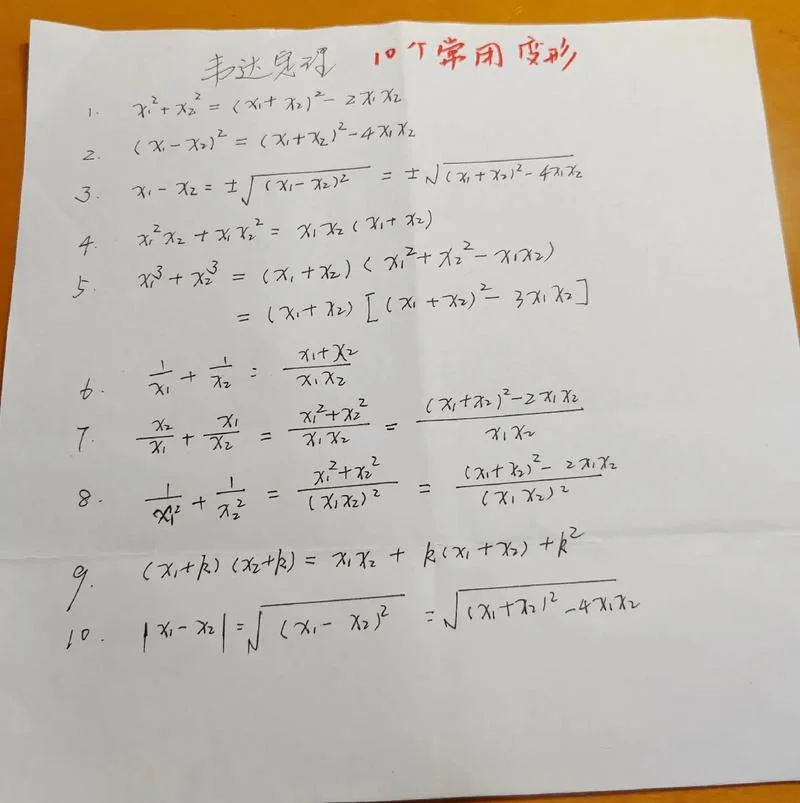 韦达定理 10个常用变形
1. x₁² + x₂² = (x₁ + x₂)² - 2x₁x₂
2. (x₁ - x₂)² = (x₁ + x₂)² - 4x₁x₂
3. x₁ - x₂ = ±√(x₁ - x₂)² = ±√(x₁ + x₂)² - 4x₁x₂
4. x₁²x₂ + x₁x₂² = x₁x₂(x₁ + x₂)
5. x₁³ + x₂³ = (x₁ + x₂)(x₁² + x₂² - x₁x₂)
= (x₁ + x₂)[(x₁ + x₂)² - 3x₁x₂]
6. 1/x₁ + 1/x₂ = (x₁ + x₂)/(x₁x₂)
7. x₂/x₁ + x₁/x₂ = (x₁² + x₂²)/(x₁x₂) = ((x₁ + x₂)² - 2x₁x₂)/(x₁x₂)
8. 1/x₁² + 1/x₂² = (x₁² + x₂²)/(x₁x₂)² = ((x₁ + x₂)² - 2x₁x₂)/(x₁x₂)²
9. (x₁ + k)(x₂ + k) = x₁x₂ + k(x₁ + x₂) + k²
10. |x₁ - x₂| = √(x₁ - x₂)² = √(x₁ + x₂)² - 4x₁x₂